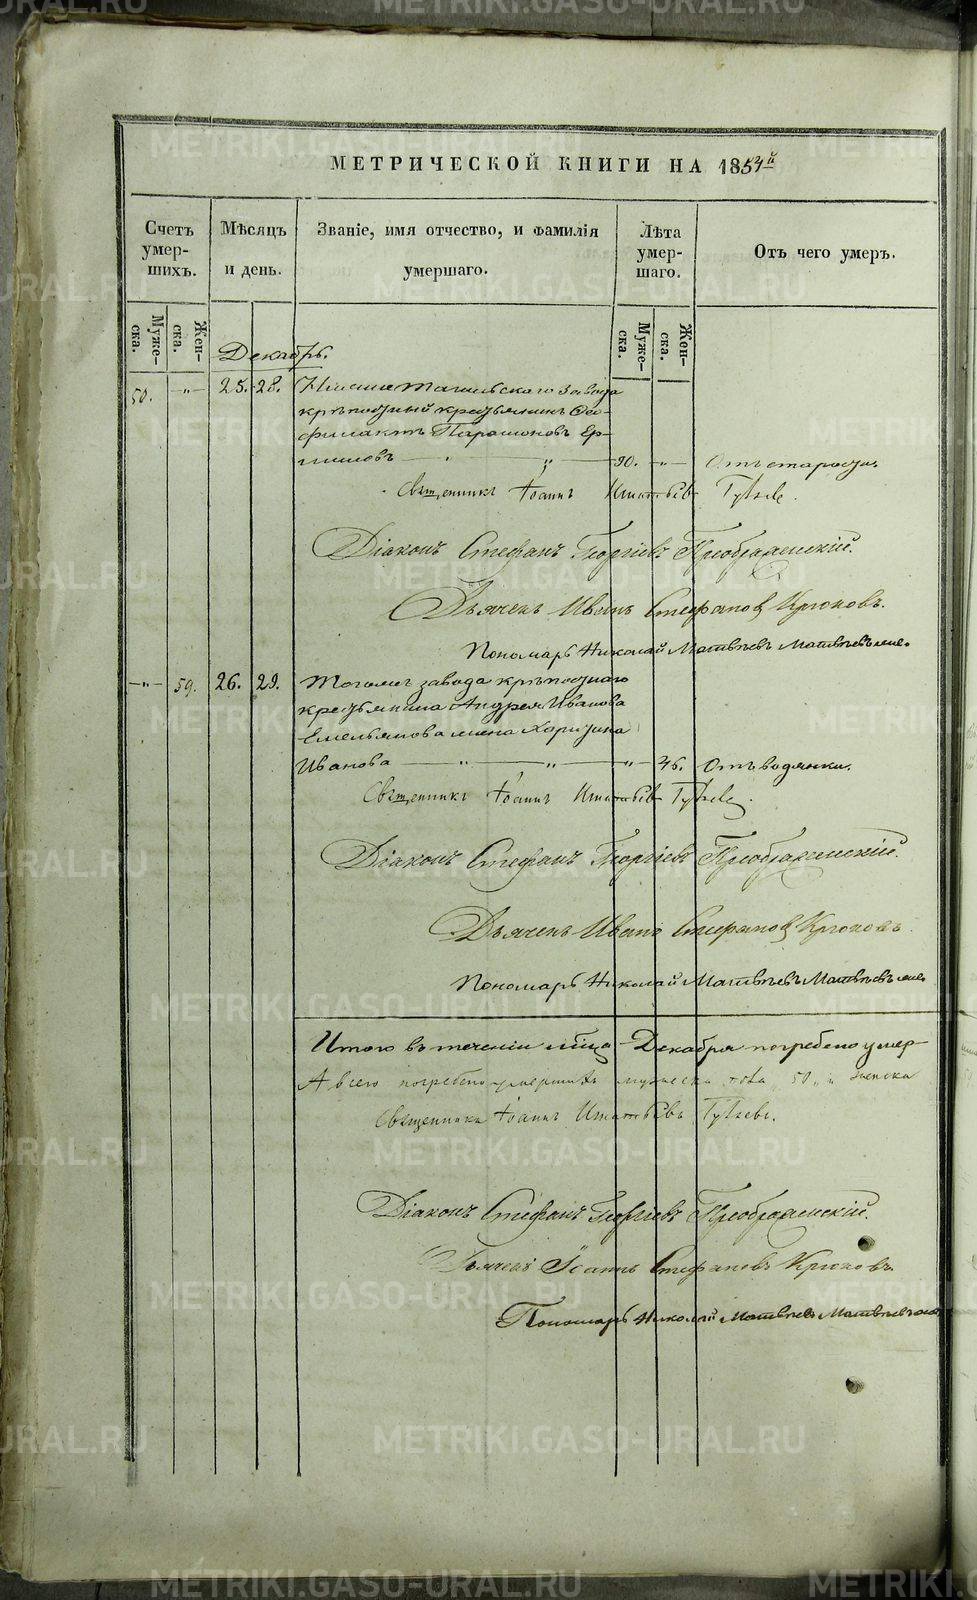 МЕТРИЧЕСКОЙ КНИГИ НА 1854й
Счетъ умер- шихъ.
Мѣсяцъ и день.
Званіе, имя отчество, и фамилія умершаго.
Лѣта умер- шаго.
Отъ чего умеръ.
Муже- ска.
Жен- ска.
Муже- ска.
Жен- ска.
Декабрь.
50. „ 25. 28. Нижнетагильскаго завода
крѣпостный крестьянинъ Ѳео-
филактъ Парамоновъ Ер-
миловъ — „ „ — 90. „ Отъ старости.
Священникъ Іоаннъ
Діаконъ Стефанъ Георгіевъ Преображенскій.
Дьячекъ Иванъ Стефановъ Крюковъ.
Пономарь Николай Матвѣевъ Матвѣевъ
„ 59. 26. 29. Тогоже завода крѣпостнаго
крестьянина Андрея Иванова
Емельянова жена Харитина
Иванова — „ „ „ — 46. Отъ водянки.
Священникъ Іоаннъ
Діаконъ Стефанъ Георгіевъ Преображенскій.
Дьячекъ Иванъ Стефановъ Крюковъ.
Пономарь Николай Матвѣевъ Матвѣевъ
Итого въ теченіи мѣсяца Декабря погребено умер-
А всего погребено умершихъ мужеска пола „50„ и женска
Священникъ Іоаннъ
Діаконъ Стефанъ Георгіевъ Преображенскій.
Дьячекъ Іоаннъ Стефановъ Крюковъ.
Пономарь Николай Матвѣевъ Матвѣевъ
METRIKI.GASO-URAL.RU